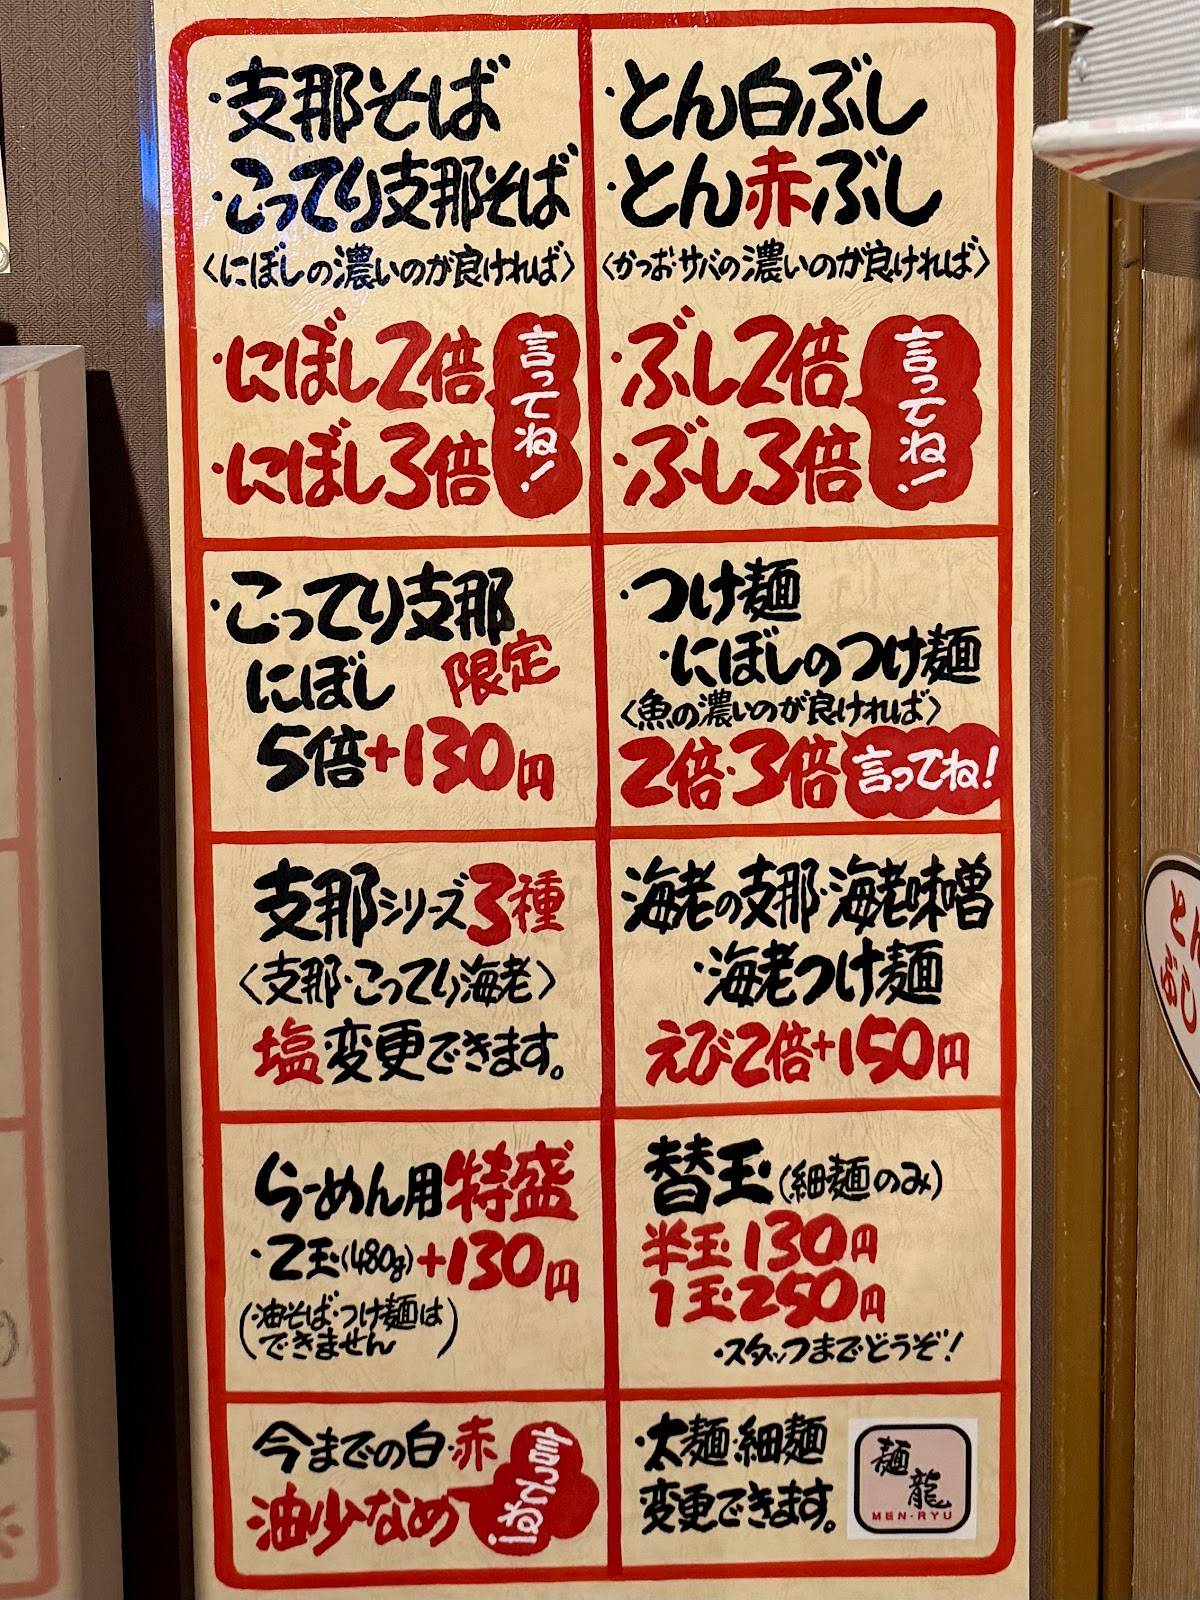 ・支那そば
・こってり支那そば
〈にぼしの濃いのが良ければ〉
・にぼし2倍
・にぼし3倍
言ってね！
・とん白ぶし
・とん赤ぶし
〈かつおサバの濃いのが良ければ〉
・ぶし2倍
・ぶし3倍
言ってね！
・こってり支那
にぼし 限定
5倍+130円
・つけ麺
・にぼしのつけ麺
〈魚の濃いのが良ければ〉
2倍・3倍 言ってね！
支那シリーズ3種
〈支那・こってり・海老〉
塩変更できます。
海老の支那・海老味噌
・海老つけ麺
えび2倍+150円
らーめん用特盛
・2玉(480g)+130円
(・油そば・つけ麺は
できません)
替玉(細麺のみ)
半玉130円
1玉250円
・スタッフまでどうぞ！
今までの白・赤
油少なめ
言ってね！
・太麺・細麺
変更できます。
麺龍
MEN-RYU
とん
ぶし